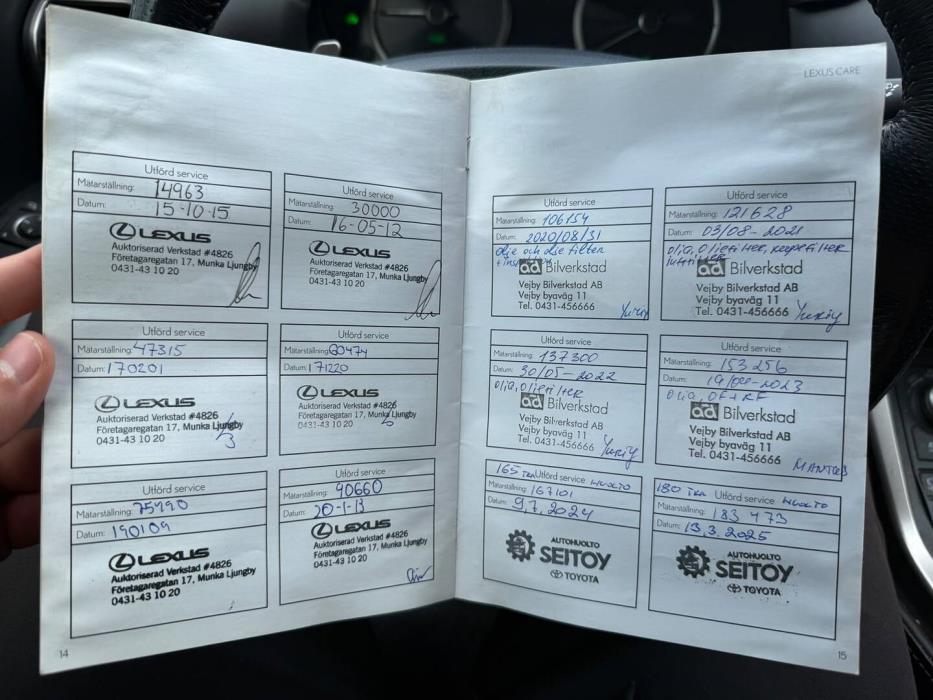 LEXUS CARE
Utförd service
Mätarställning: 14963
Datum: 15-10-15
LEXUS
Auktoriserad Verkstad #4826
Företagaregatan 17, Munka Ljungby
0431-43 10 20
Utförd service
Mätarställning: 30000
Datum: 16-05-12
LEXUS
Auktoriserad Verkstad #4826
Företagaregatan 17, Munka Ljungby
0431-43 10 20
Utförd service
Mätarställning: 47315
Datum: 170201
LEXUS
Auktoriserad Verkstad #4826
Företagaregatan 17, Munka Ljungby
0431-43 10 20
Utförd service
Mätarställning: 60474
Datum: 171220
LEXUS
Auktoriserad Verkstad #4826
Företagaregatan 17, Munka Ljungby
0431-43 10 20
Utförd service
Mätarställning:
Datum: 190109
LEXUS
Auktoriserad Verkstad #4826
Företagaregatan 17, Munka Ljungby
0431-43 10 20
Utförd service
Mätarställning: 90660
Datum: 20-1-13
LEXUS
Auktoriserad Verkstad #4826
Företagaregatan 17, Munka Ljungby
0431-43 10 20
14
Utförd service
Mätarställning: 106154
Datum: 2020/08/31
olje och olje filter
ad Bilverkstad
Vejby Bilverkstad AB
Vejby byaväg 11
Tel. 0431-456666
Yuriy
Utförd service
Mätarställning: 121628
Datum: 03/08-2021
olja, oljefilter, kupefilter
luftfilter
ad Bilverkstad
Vejby Bilverkstad AB
Vejby byaväg 11
Tel. 0431-456666
Yuriy
Utförd service
Mätarställning: 137300
Datum: 30/05-2022
olja, oljefilter
ad Bilverkstad
Vejby Bilverkstad AB
Vejby byaväg 11
Tel. 0431-456666
Yuriy
Utförd service
Mätarställning: 153256
Datum:
olja, OF+KF
ad Bilverkstad
Vejby Bilverkstad AB
Vejby byaväg 11
Tel. 0431-456666
165 tkm Utförd service HUOLTO
Mätarställning: 167101
Datum: 9.7.2024
AUTOHUOLTO
SEITOY
TOYOTA
180 tkm Utförd service HUOLTO
Mätarställning: 183 473
Datum: 13.3.2025
AUTOHUOLTO
SEITOY
TOYOTA
15